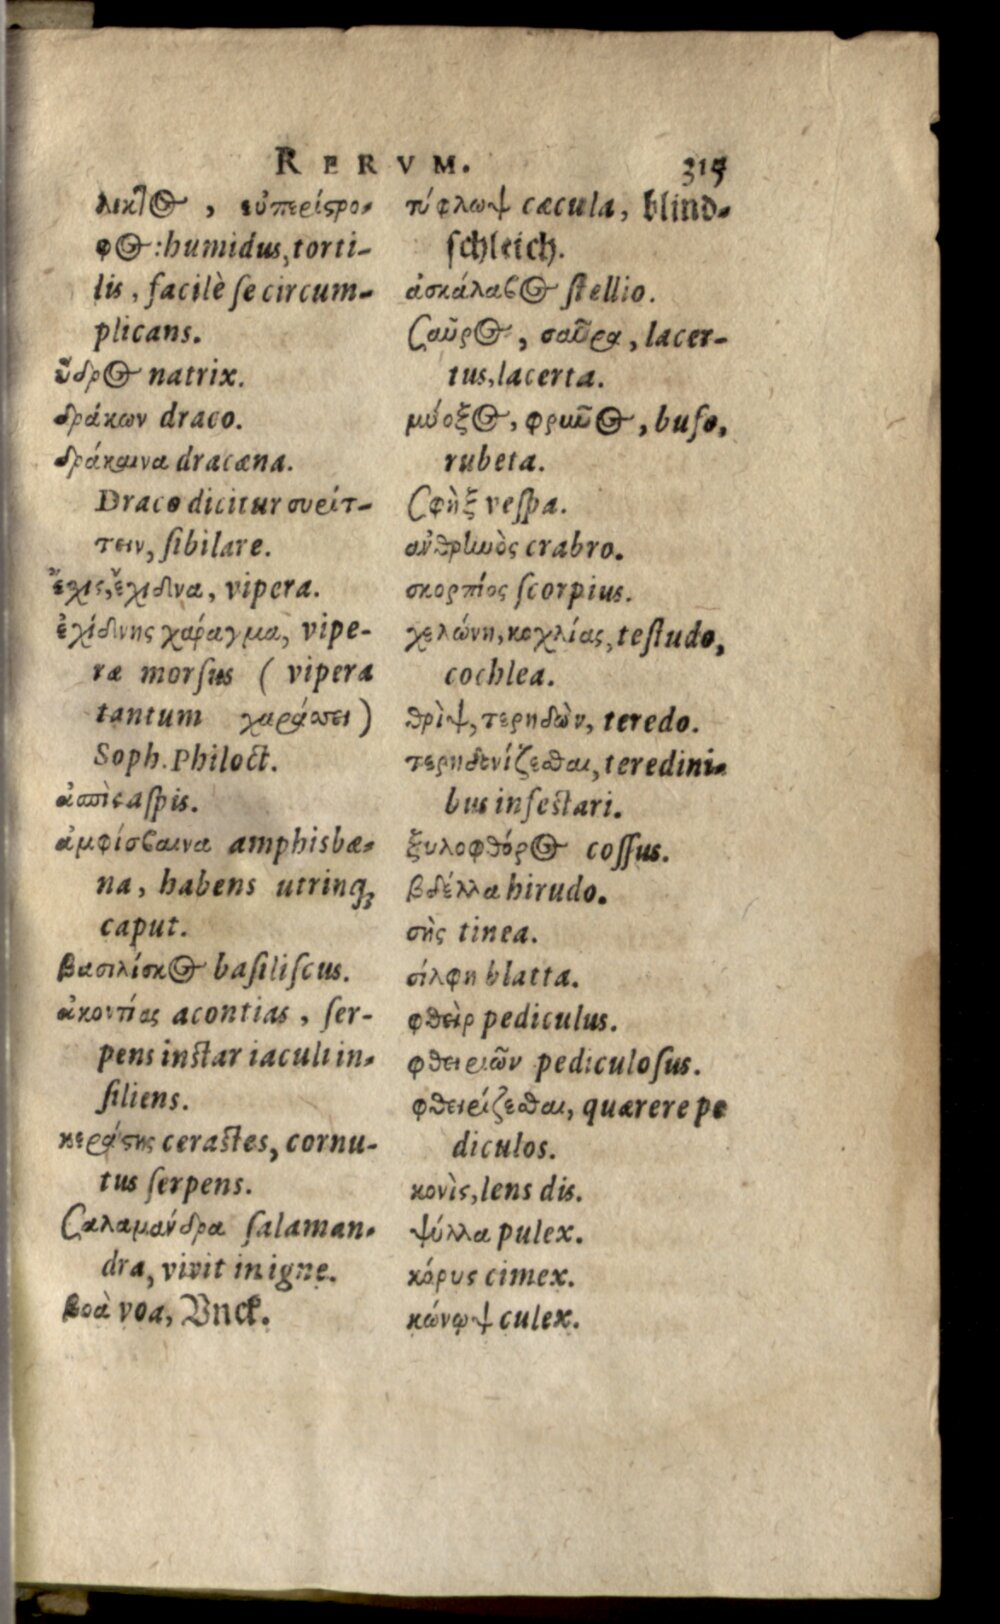 RERVM. 315
λικτος, εὐπερίστρο-
φος: humidus, torti-
lis, facilè se circum-
plicans.
ὕδρος natrix.
δράκων draco.
δράκαινα dracæna.
Draco dicitur συρίτ-
τειν, sibilare.
ἔχις, ἔχιδνα, vipera.
ἐχίδνης χάραγμα, vipe-
ræ morsus (vipera
tantum χαράττει)
Soph. Philoct.
ἀσπὶς aspis.
ἀμφίσβαινα amphisbæ-
na, habens utrinq;
caput.
βασιλίσκος basiliscus.
ἀκοντίας acontias, ser-
pens instar iaculi in-
siliens.
κεράστης cerastes, cornu-
tus serpens.
Σαλαμάνδρα salaman-
dra, vivit in igne.
βοὰ voa, Vnck.
τύφλωψ cæcula, blind-
schleich.
ἀσκάλαβος stellio.
Σαῦρος, σαῦρα, lacer-
tus, lacerta.
μύοξος, φρῦνος, bufo,
rubeta.
Σφὴξ vespa.
ἀνθρηνὸς crabro.
σκορπίος scorpius.
χελώνη, κοχλίας, testudo,
cochlea.
θρὶψ, τερηδὼν, teredo.
τερηδονίζεσθαι, teredini-
bus infestari.
ξυλοφθόρος cossus.
βδέλλα hirudo.
σὴς tinea.
σίλφη blatta.
φθεὶρ pediculus.
φθειριῶν pediculosus.
φθειρίζεσθαι, quærere pe
diculos.
κονὶς, lens dis.
ψύλλα pulex.
κόρυς cimex.
κώνωψ culex.